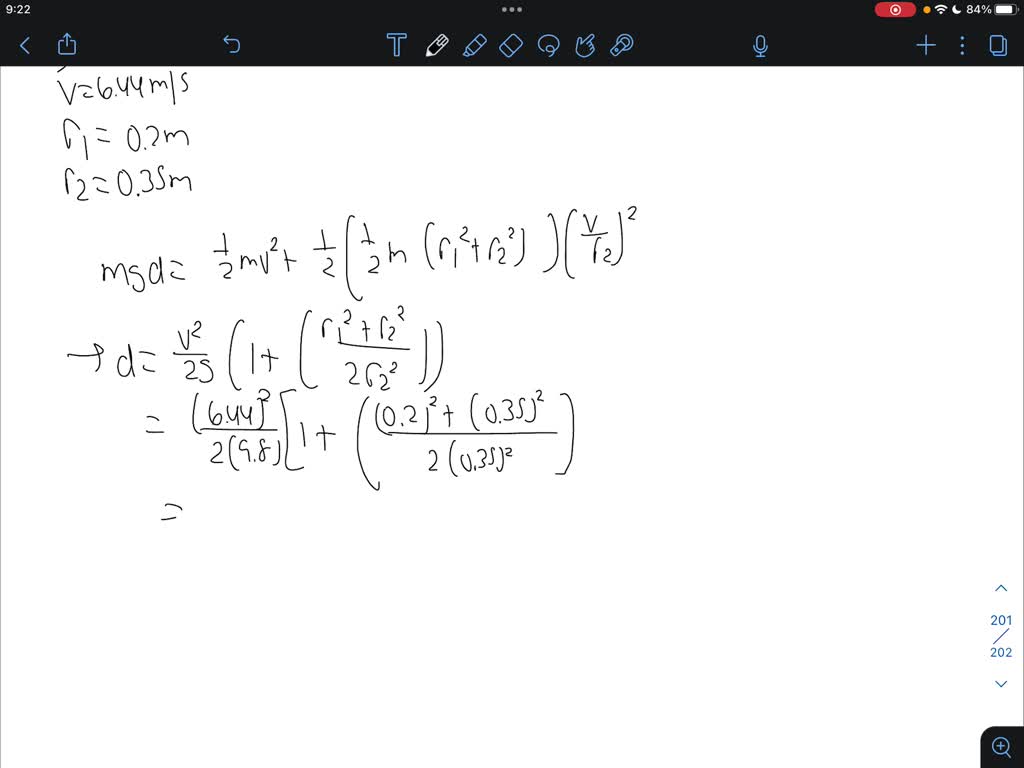 9:22
84%
v=6.44m/s
r₁= 0.2m
r₂=0.35m
mgd= 1/2 mv² + 1/2 (1/2 m (r₁²+r₂²)) (v/r₂)²
→ d= v²/2g (1+ ((r₁²+r₂²)/2r₂²))
= (6.44)²/2(9.8) [1+ (((0.2)²+(0.35)²)/2(0.35)²]
=
201
202